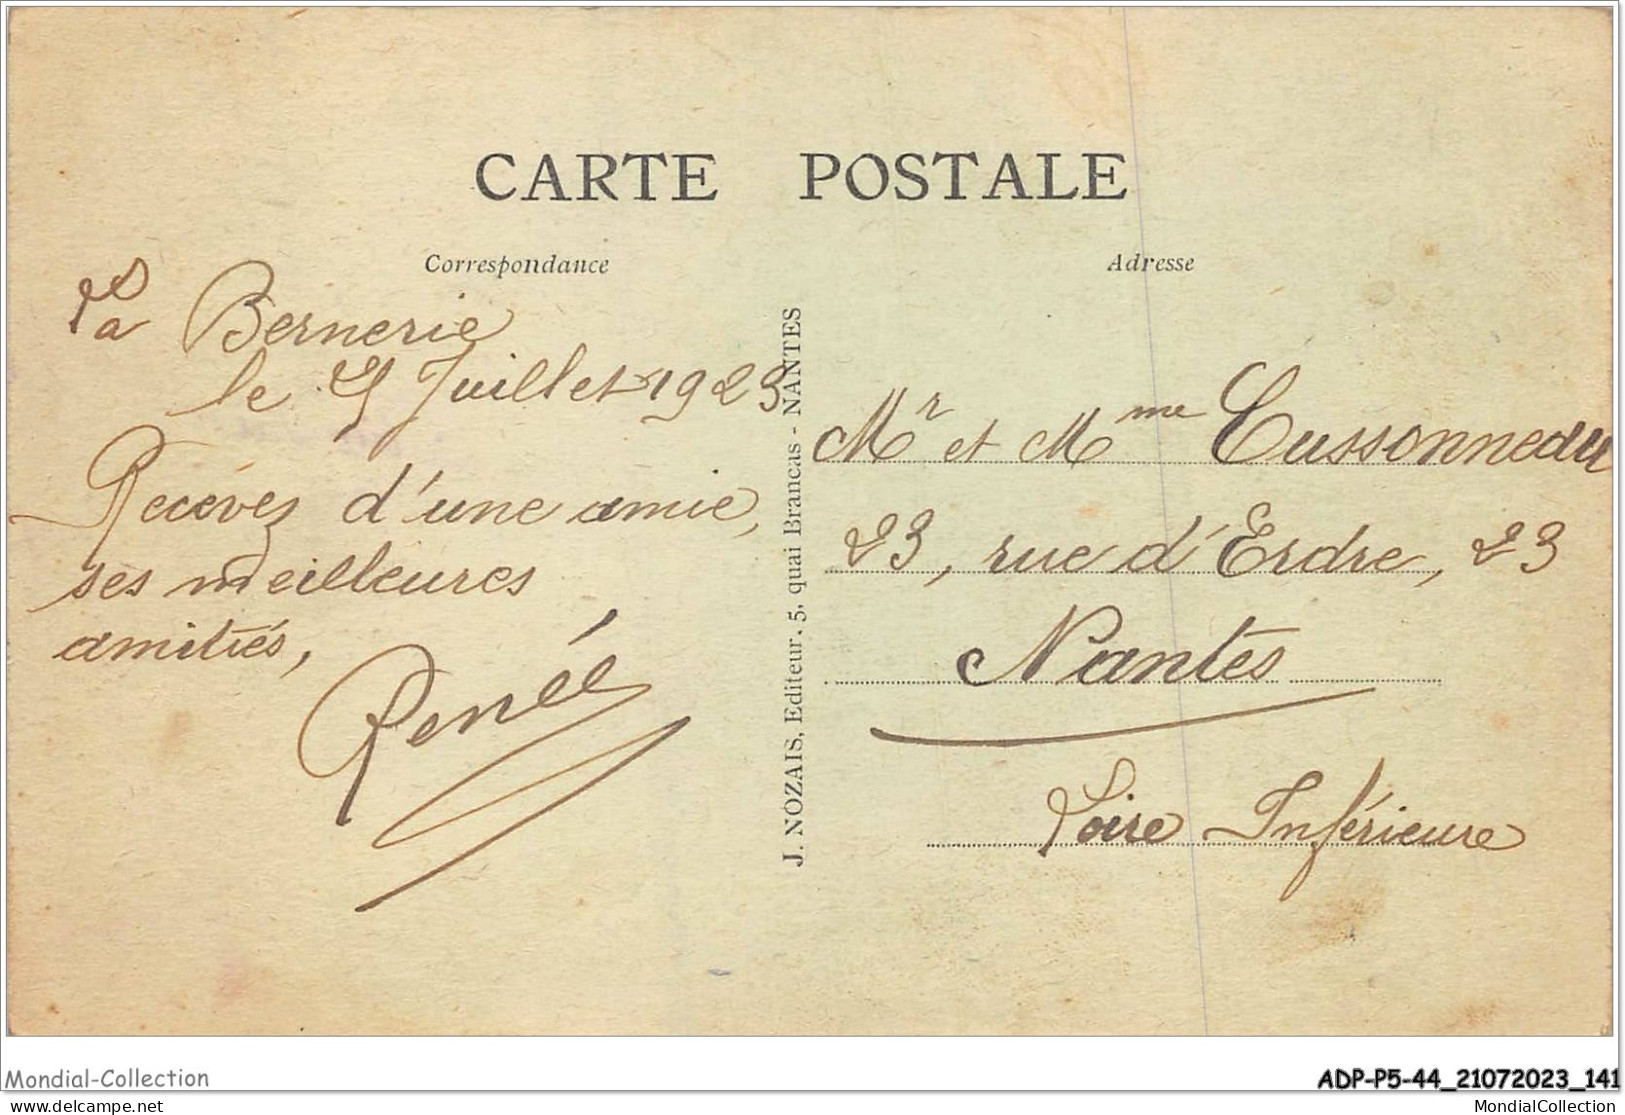 CARTE POSTALE
Correspondance
La Bernerie
le Juillet 1923
Recevez d'une amie,
ses meilleures
amitiés,
Renée
J. NOZAIS, Editeur, 5, quai Brancas - NANTES
Adresse
Mr et Mme Cussonneau
23, rue d'Erdre, 23
Nantes
Loire Inférieure
Mondial-Collection
ADP-P5-44_21072023_141
Mondial-Collection.com
MondialCollection